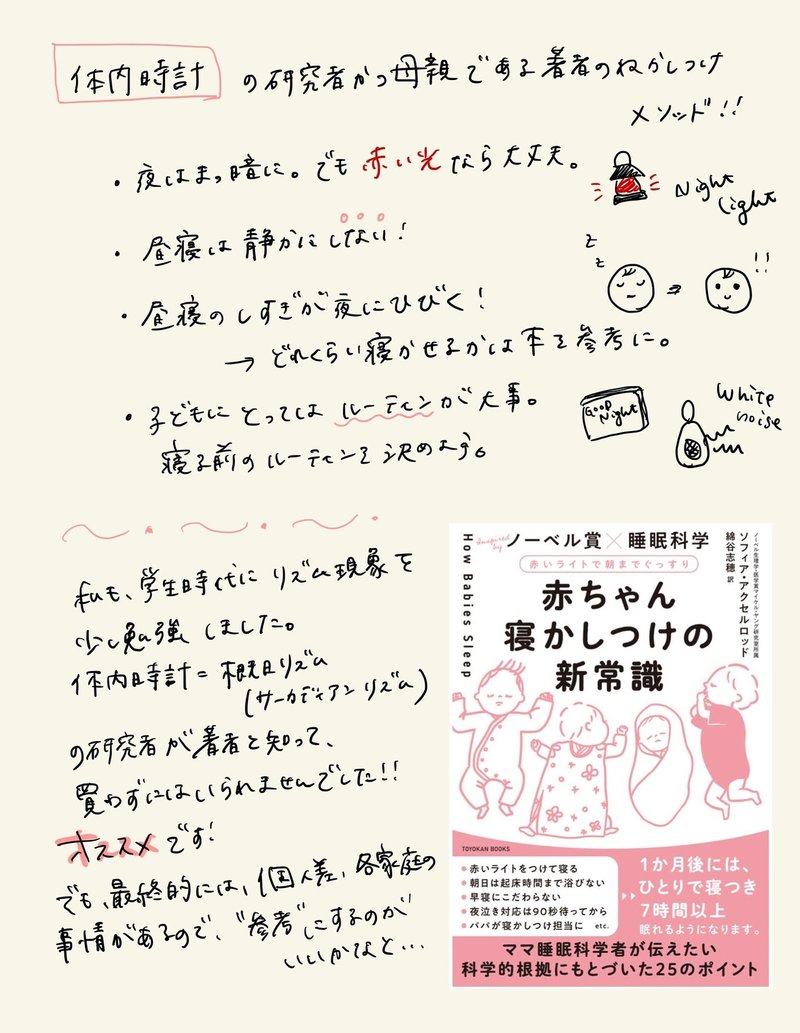 体内時計 の研究者かつ母親である著者のねかしつけ
メソッド!!
・夜はまっ暗に。でも赤い光なら大丈夫。
Night
Light
・昼寝は静かにしない!
z
z
!!
・昼寝のしすぎが夜にひびく!
→ どれくらい寝かせるかは本を参考に。
・子どもにとってはルーティンが大事。
寝る前のルーティンを決めよう。
GOOD
Night
White
noise
私も、学生時代にリズム現象を
少し勉強しました。
体内時計=概日リズム
(サーカディアンリズム)
の研究者が著者と知って、
買わずにはいられませんでした!!
オススメです!
でも、最終的には、個人差、各家庭の
事情があるので、"参考"にするのが
いいかなと…
Inspired by ノーベル賞×睡眠科学
赤いライトで朝までぐっすり
赤ちゃん
寝かしつけの
新常識
How Babies Sleep
ノーベル生理学・医学賞マイケル・ヤング研究室所属
ソフィア・アクセルロッド
綿谷志穂 訳
TOYOKAN BOOKS
●赤いライトをつけて寝る
●朝日は起床時間まで浴びない
●早寝にこだわらない
●夜泣き対応は90秒待ってから
●パパが寝かしつけ担当に etc.
1か月後には、
ひとりで寝つき
7時間以上
眠れるようになります。
ママ睡眠科学者が伝えたい
科学的根拠にもとづいた25のポイント